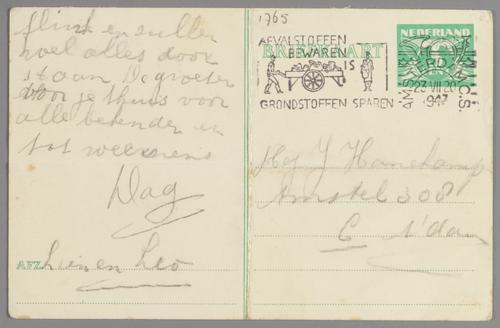 flink en zullen
wel alles door
staan De groeten
voor je thuis voor
alle bekenden en
tot weerziens
Dag
AFZ. Lien en Leo
1765
NEDERLAND
BRIEFKAART
AFVALSTOFFEN
BEWAREN
IS
GRONDSTOFFEN SPAREN
23 VII 20
1943
Mej J Hanekamp
Amstel 308
C A'dam